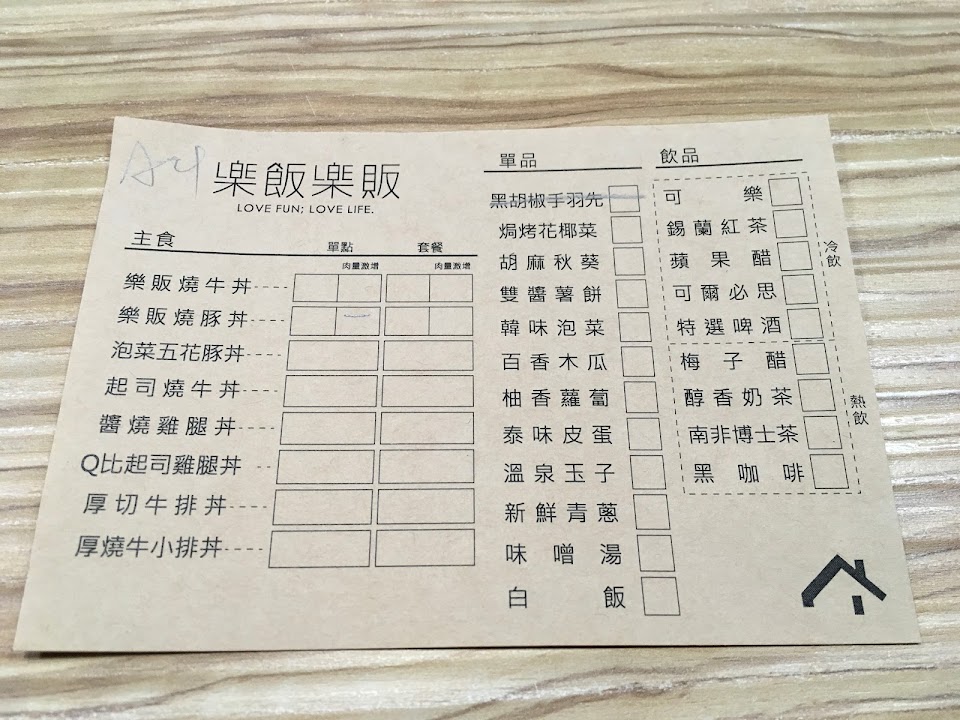 樂飯樂販
LOVE FUN; LOVE LIFE.
主食 單點 套餐
肉量激增 肉量激增
樂販燒牛丼
樂販燒豚丼
泡菜五花豚丼
起司燒牛丼
醬燒雞腿丼
Q比起司雞腿丼
厚切牛排丼
厚燒牛小排丼
單品
黑胡椒手羽先
焗烤花椰菜
胡麻秋葵
雙醬薯餅
韓味泡菜
百香木瓜
柚香蘿蔔
泰味皮蛋
溫泉玉子
新鮮青蔥
味噌湯
白飯
飲品
可樂
錫蘭紅茶
蘋果醋
可爾必思
特選啤酒
冷飲
梅子醋
醇香奶茶
南非博士茶
黑咖啡
熱飲